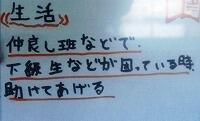 《生活》
仲良し班などで、
下級生などが困っている時、
助けてあげる